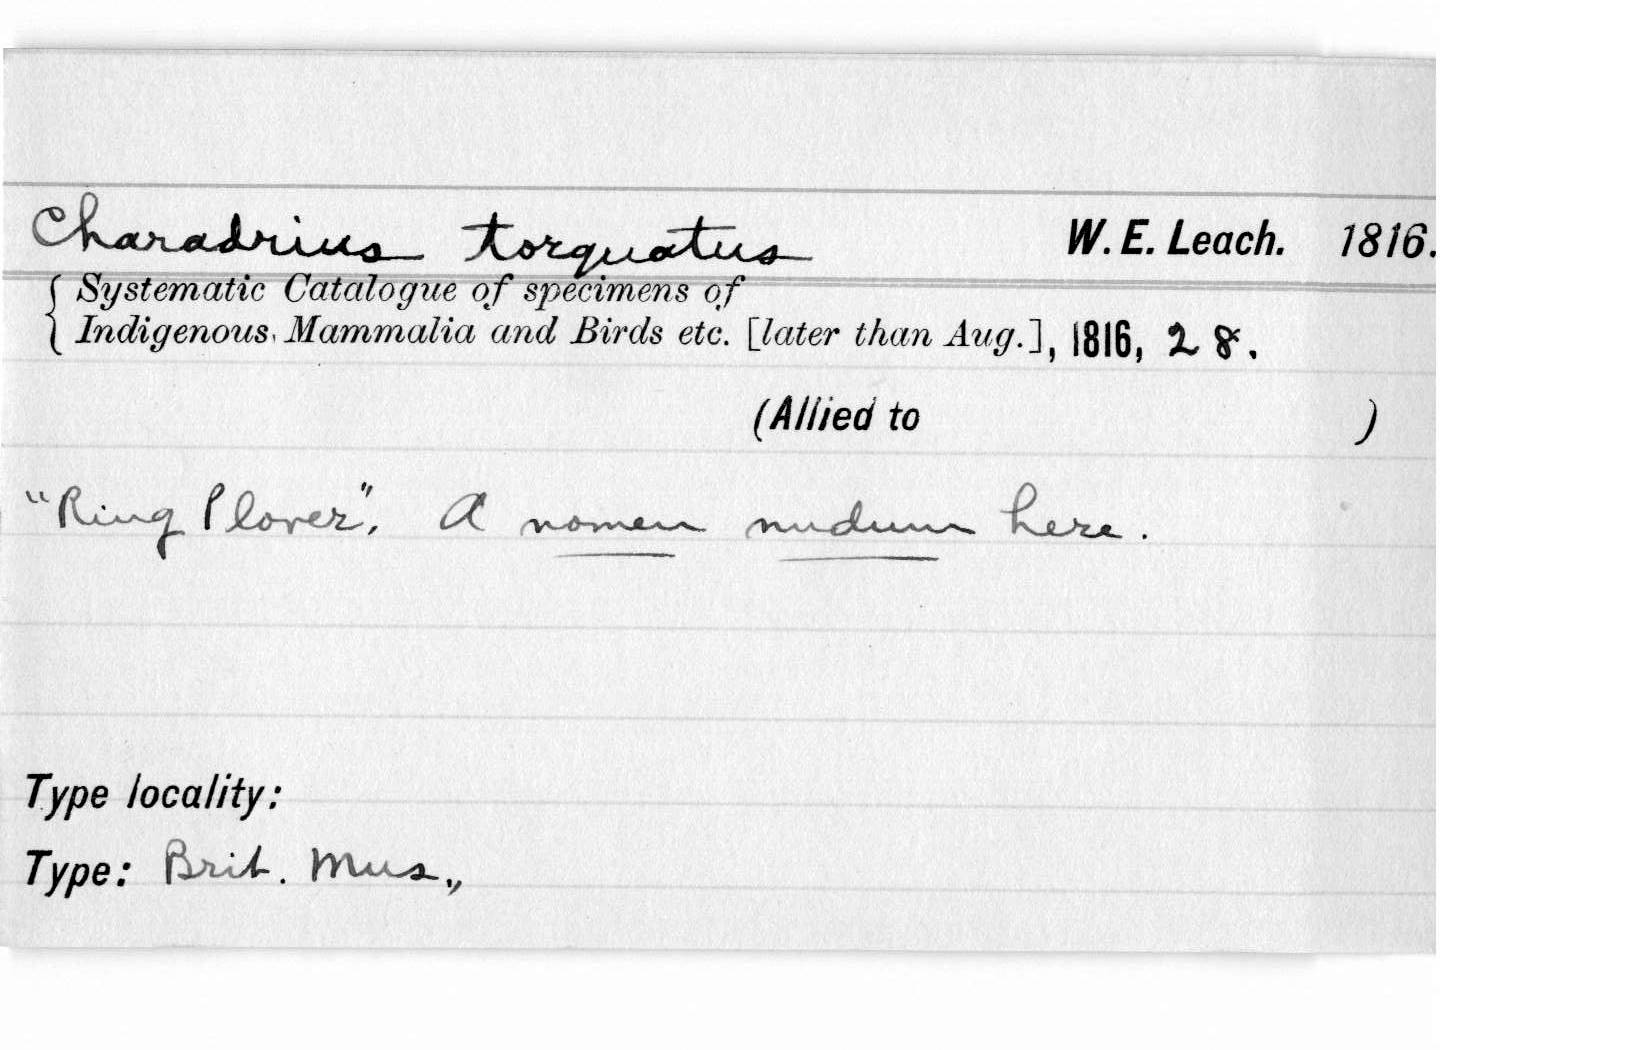 Charadrius torquatus W. E. Leach. 1816.
Systematic Catalogue of specimens of
Indigenous Mammalia and Birds etc. [later than Aug.], 1816, 28.
(Allied to )
"Ring Plover". A nomen nudum here.
Type locality:
Type: Brit. Mus.,